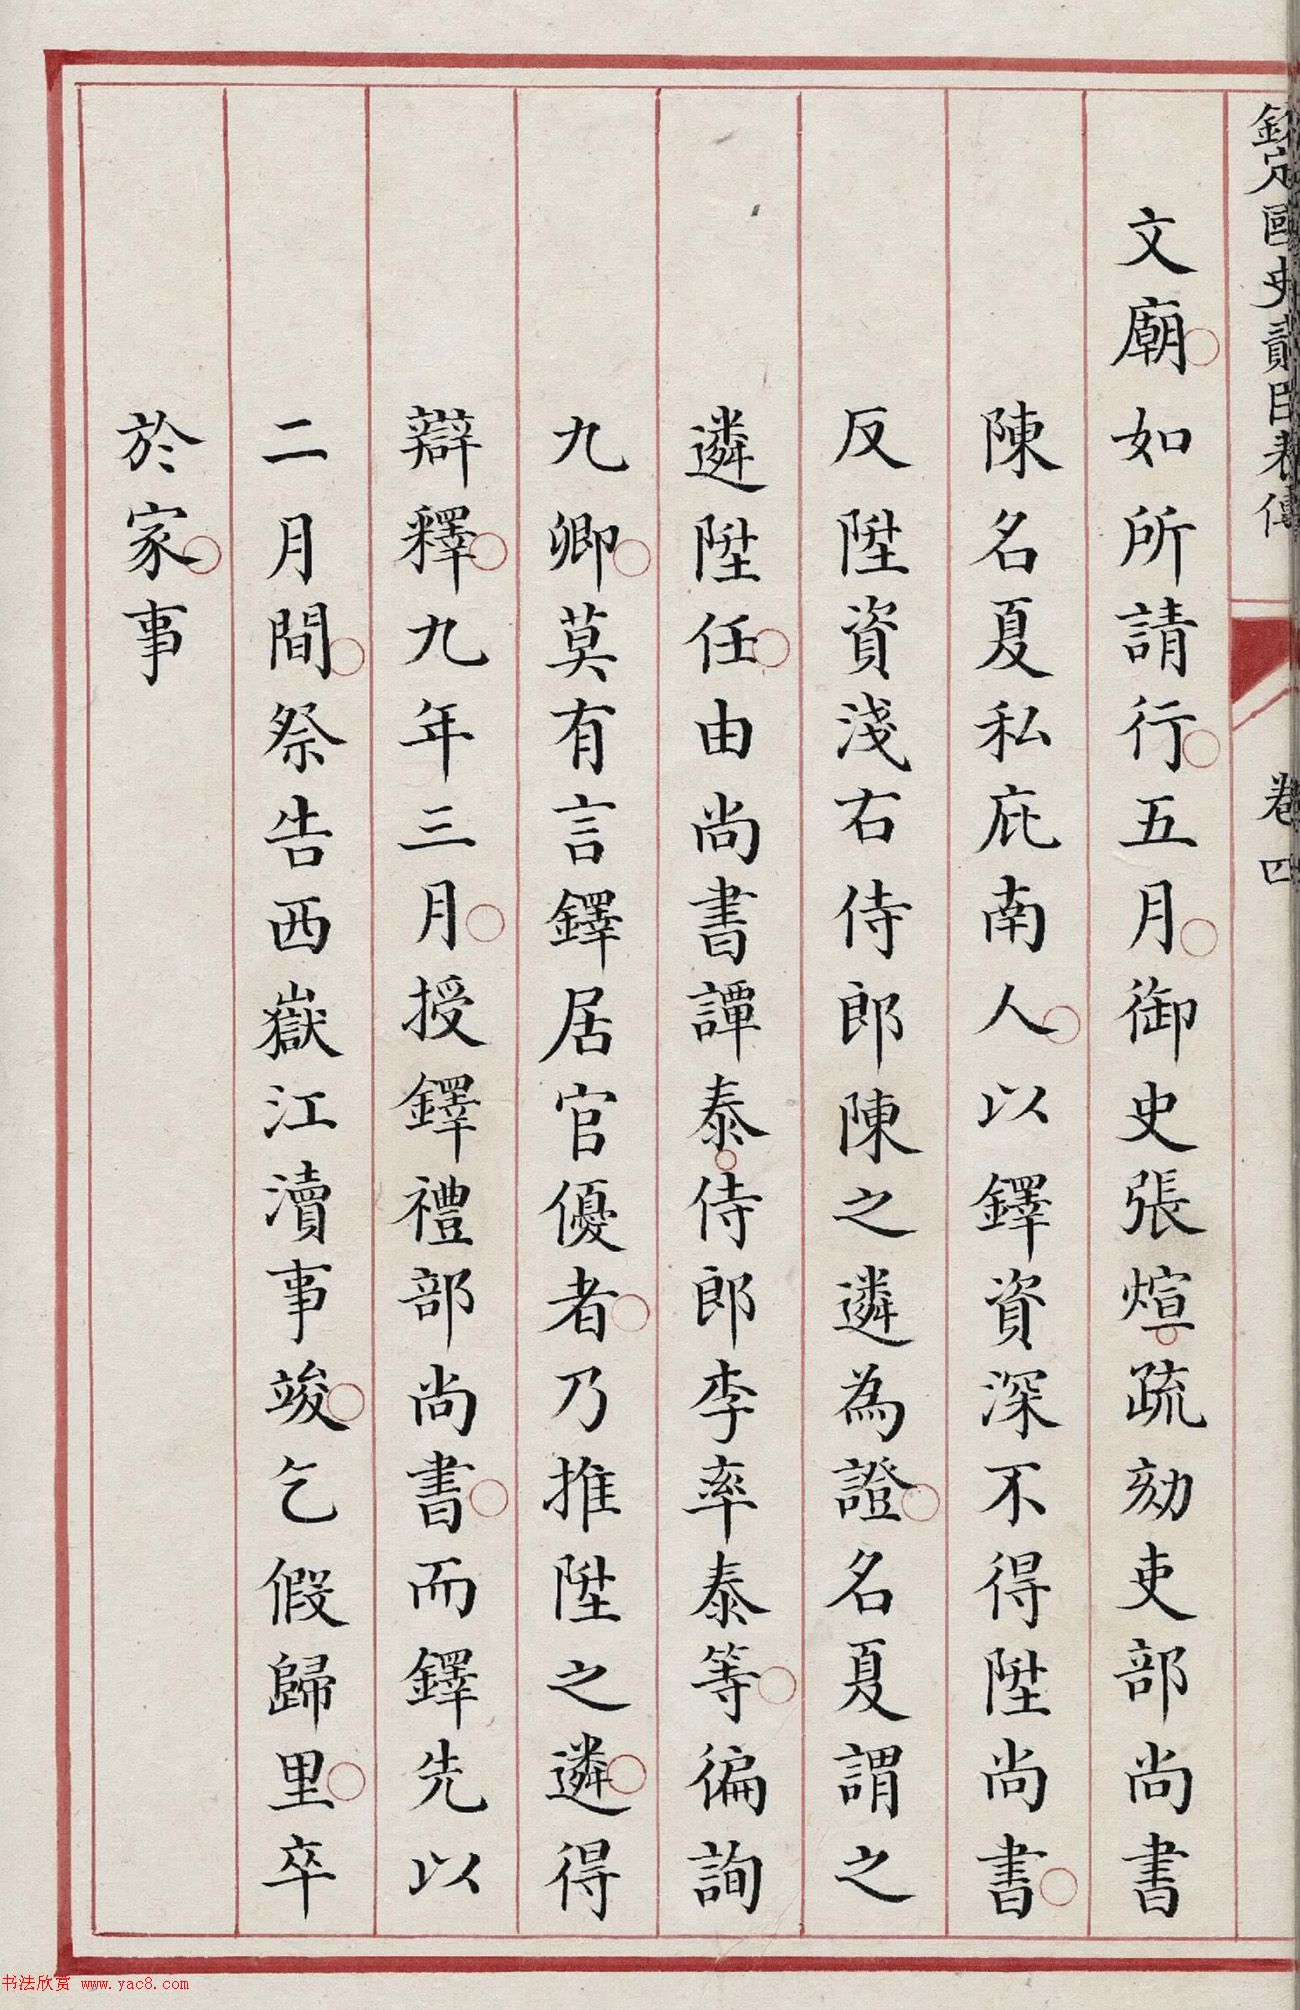 欽定國史貳臣表傳
卷四
文廟如所請行五月御史張煊疏劾吏部尚書
陳名夏私庇南人以鐸資深不得陞尚書
反陞資淺右侍郎陳之遴為證名夏謂之
遴陞任由尚書譚泰侍郎李率泰等徧詢
九卿莫有言鐸居官優者乃推陞之遴得
辯釋九年三月授鐸禮部尚書而鐸先以
二月間祭告西嶽江瀆事竣乞假歸里卒
於家事
书法欣赏 www.yac8.com